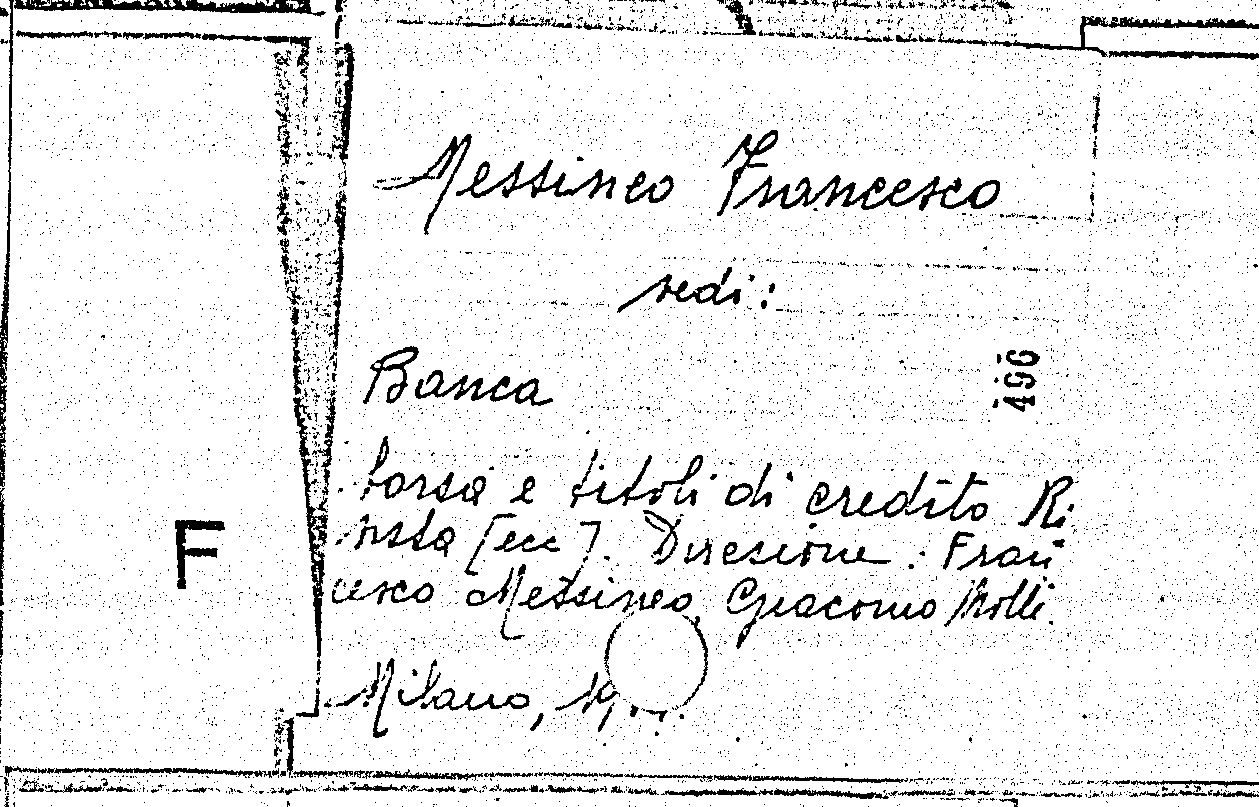 Messineo Francesco
vedi:
Banca
borsa e titoli di credito Ri
vista [ecc]. Direzione: Fran
cesco Messineo, Giacomo Molle.
Milano, 19...
496
F